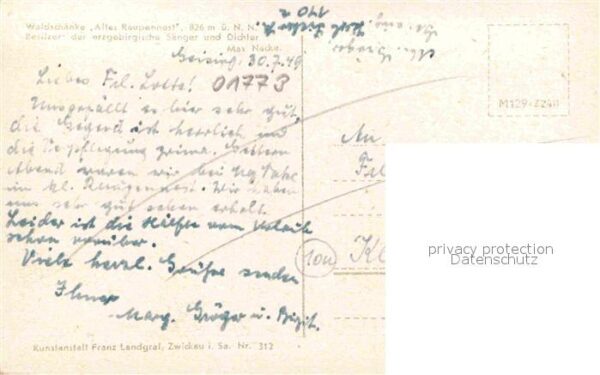 Waldschänke „Altes Raupennest", 826 m ü. N. N.
Besitzer: der erzgebirgische Sänger und Dichter
Max Nacke.
Geising, 30.7.49
Liebes Frl. Lotte!
01773
Uns gefällt es hier sehr gut,
die Gegend ist herrlich und
die Verpflegung prima. Gestern
Abend waren wir bei
im kl. Raupennest. Wir haben
uns sehr gut schon erholt.
Leider ist die Hälfte vom Urlaub
schon vorüber.
Viele herzl. Grüße senden
Ihnen
Marg. Gröger u. Birgit.
Kunstanstalt Franz Landgraf, Zwickau i. Sa. Nr. 312
M129-Z240
An
10a
privacy protection
Datenschutz